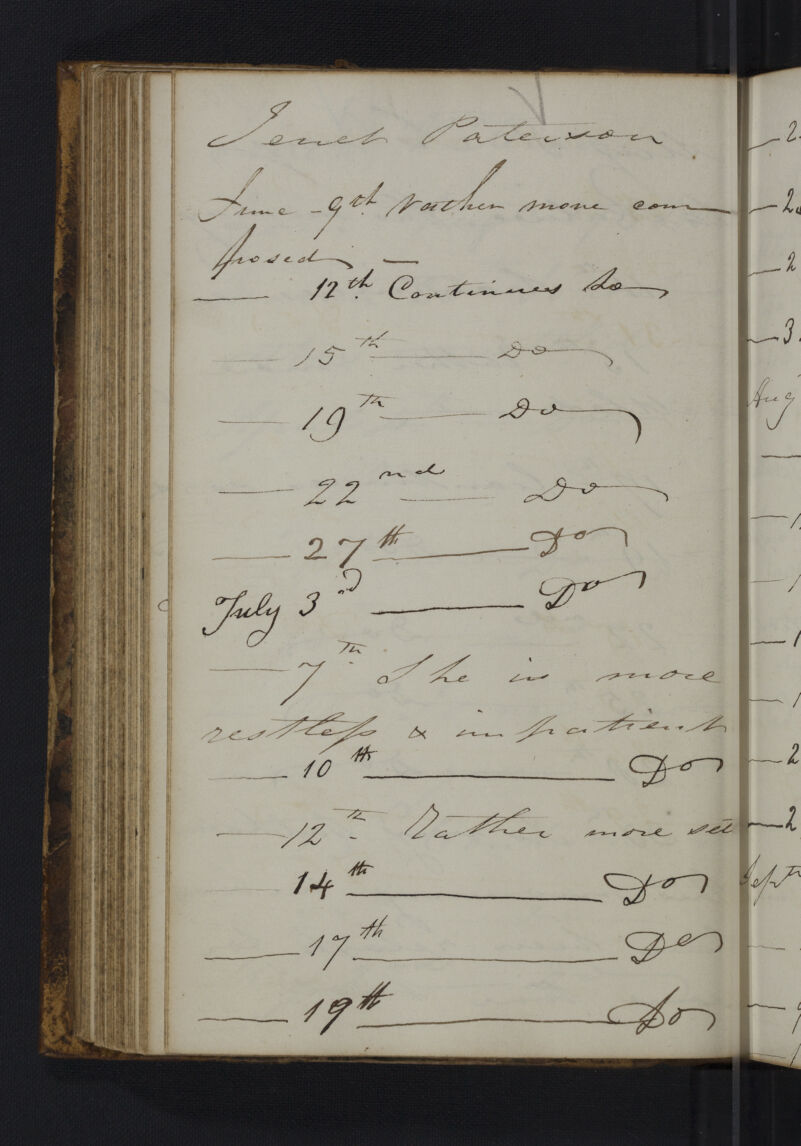 Jenet Paterson
June - 9th rather more com
posed -
— 12th Continues So
— 15th — Do
— 19th — Do
— 22nd — Do
— 27th — Do
July 3rd — Do
— 7th She is more
restless & impatient
— 10th — Do
— 12th Rather more set
— 14th — Do
— 17th — Do
— 19th — Do
— 2
— 2
— 3
Aug
— 2
— 2
Septr